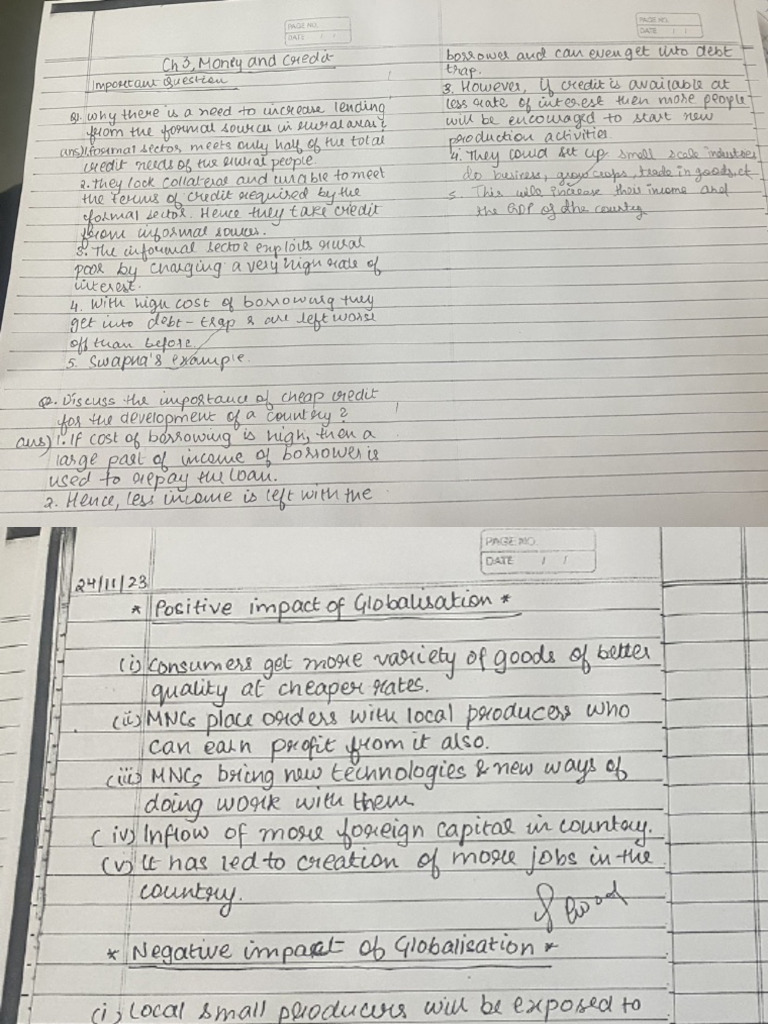 PAGE NO.
DATE / /
Ch 3, Money and Credit
Important Question
Q. Why there is a need to increase lending
from the formal sources in rural area?
ans) 1. formal sector meets only half of the total
credit needs of the rural people.
2. They lack collateral and unable to meet
the terms of credit required by the
formal sector. Hence they take credit
from informal sources.
3. The informal sector exploits rural
poor by charging a very high rate of
interest.
4. With high cost of borrowing they
get into debt-trap & are left worse
off than before.
5. Swapna's example.
Q2. Discuss the importance of cheap credit
for the development of a country?
ans) 1. If cost of borrowing is high, then a
large part of income of borrower is
used to repay the loan.
2. Hence, less income is left with the
PAGE NO.
DATE / /
borrower and can even get into debt
trap.
3. However, if credit is available at
less rate of interest then more people
will be encouraged to start new
production activities.
4. They could set up small scale industries
do business, grow crops, trade in goods, et
5. This will increase their income and
the GDP of the country
PAGE NO.
DATE / /
24/11/23
* Positive impact of Globalisation *
(i) Consumers get more variety of goods of better
quality at cheaper rates.
(ii) MNCs place orders with local producers who
can earn profit from it also.
(iii) MNCs bring new technologies & new ways of
doing work with them
(iv) Inflow of more foreign capital in country.
(v) It has led to creation of more jobs in the
country.
Good
* Negative impact of Globalisation *
(i) Local small producers will be exposed to